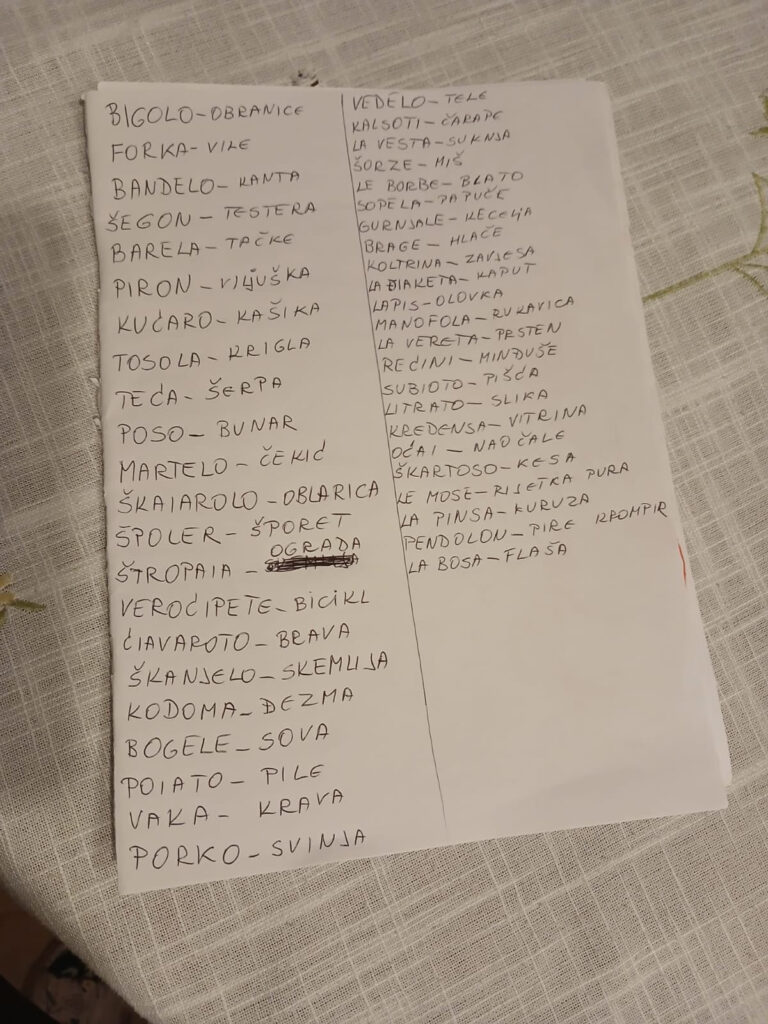 BIGOLO-OBRANICE
FORKA-VILE
BANDELO-KANTA
ŠEGON-TESTERA
BARELA-TAČKE
PIRON-VILJUŠKA
KUĆARO-KAŠIKA
TOSOLA-KRIGLA
TEĆA-ŠERPA
POSO-BUNAR
MARTELO-ČEKIĆ
ŠKAIAROLO-OBLARICA
ŠPOLER-ŠPORET
ŠTROPAIA-OGRADA
VEROĆIPETE-BICIKL
ĆIAVAROTO-BRAVA
ŠKANJELO-SKEMLIJA
KODOMA-ĐEZMA
BOGELE-SOVA
POIATO-PILE
VAKA-KRAVA
PORKO-SVINJA
VEDELO-TELE
KALSOTI-ČARAPE
LA VESTA-SUKNJA
ŠORZE-MIŠ
LE BORBE-BLATO
SOPELA-PAPUČE
GURNJALE-KECELJA
BRAGE-HLAČE
KOLTRINA-ZAVJESA
LA ĐIAKETA-KAPUT
LAPIS-OLOVKA
MANOFOLA-RUKAVICA
LA VERETA-PRSTEN
REĆINI-MINĐUŠE
SUBIOTO-PIŠĆA
LITRATO-SLIKA
KREDENSA-VITRINA
OĆAI-NAOČALE
ŠKARTOSO-KESA
LE MOSE-RIJETKA PURA
LA PINSA-KURUZA
PENDOLON-PIRE KROMPIR
LA BOSA-FLAŠA